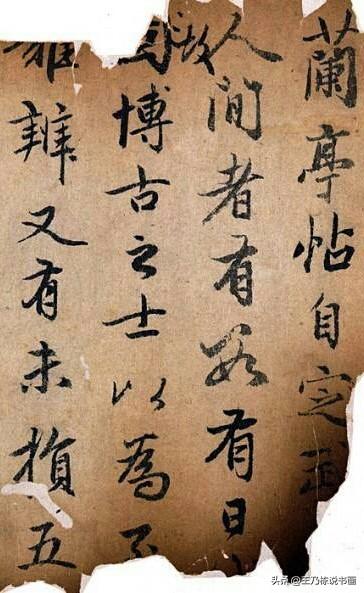 蘭亭帖自定武
人間者有數有日
故博古之士以為至
難辨又有未損五
头条 @王乃栋说书画